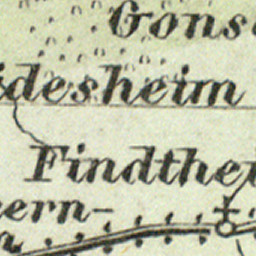 Gonse
idesheim
Findthei
ern-